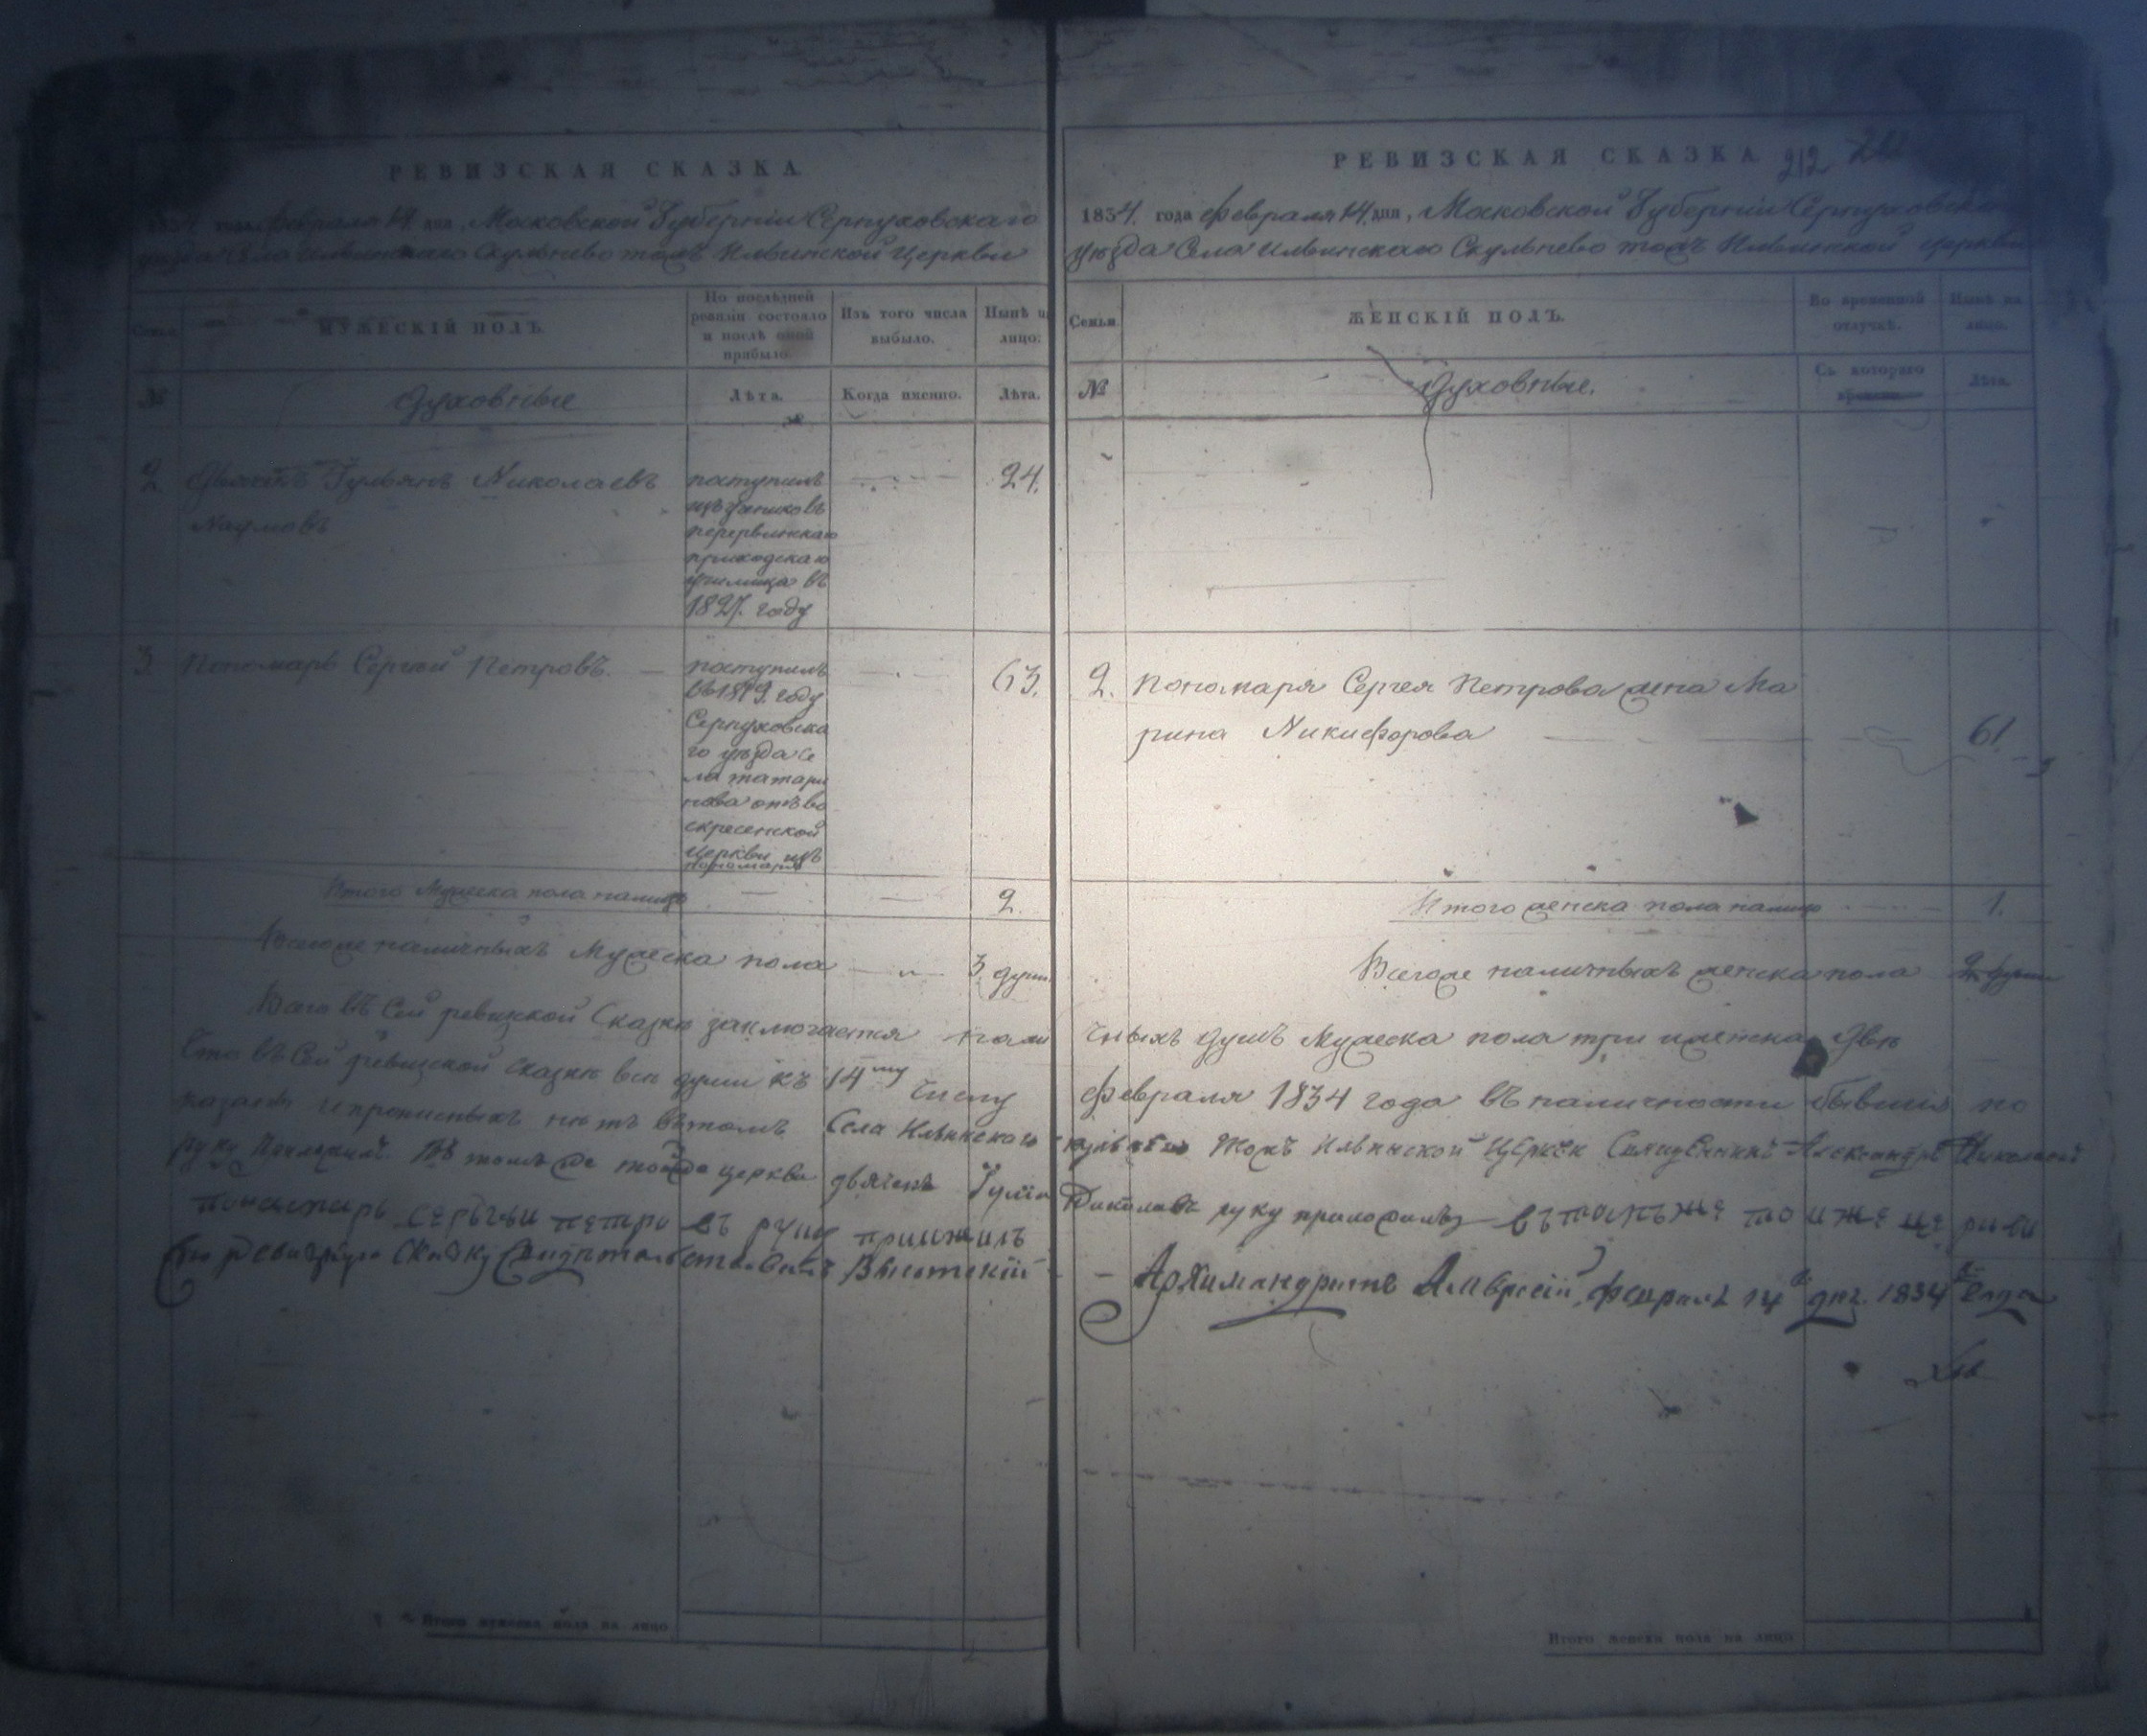 РЕВИЗСКАЯ СКАЗКА
1834 года февраля 14 дня, Московской Губерніи Серпуховскаго
уѣзда Села Ильинскаго Скульнево тожъ Ильинской Церкви
Семьи
МУЖЕСКІЙ ПОЛЪ.
По послѣдней ревизіи состояло и послѣ оной прибыло
Изъ того числа выбыло.
Нынѣ на лицо.
№
Духовные
Лѣта.
Когда именно.
Лѣта.
2. Дьячекъ Іульянъ Николаевъ
поступилъ
24.
Наумовъ
изъ учениковъ
перервинскаго
приходскаго
училища въ
1827. году
3 Пономарь Сергей Петровъ.
поступилъ
63.
году
Серпуховска
го уѣзда се
ла татари
нова отъ во
скресенской
церкви изъ
пономарей
Итого Мужеска пола налицо
2.
Всегоже наличныхъ Мужеска пола
3. души
РЕВИЗСКАЯ СКАЗКА 212
1834. года февраля 14 дня, Московской Губерніи Серпуховскаго
уѣзда Села Ильинскаго Скульнево тожъ Ильинской церкви
Семьи
ЖЕНСКІЙ ПОЛЪ.
Во временной отлучкѣ.
Нынѣ на лицо.
№
Духовные.
Съ котораго времени.
Лѣта.
2. Пономаря Сергея Петрова жена Ма
рина Никифорова
61
Итого женска пола налицо
1.
Всегоже наличныхъ женска пола 2. души
Всего въ Сей ревизской Сказкѣ заключается нали чныхъ душъ Мужеска пола три и женска двѣ
Что въ Сей ревизской сказкѣ всѣ души къ 14му числу февраля 1834 года въ наличности бывшія по
казаны и прописныхъ нѣтъ въ томъ Села Ильинскаго тожъ Ильинской Церкви Священникъ Александръ
руку Приложилъ. Въ томъ же тойже церкви дьячекъ руку приложилъ въ томъ же тоя же це ркви
пономарь сергѣи петровъ руку приложилъ
Сію ревизскую сказку Свидѣтельствовалъ Высотскій Архимандритъ Амвросій, февраля 14 дня 1834 года
Итого мужеска пола на лицо
Итого женска пола на лицо